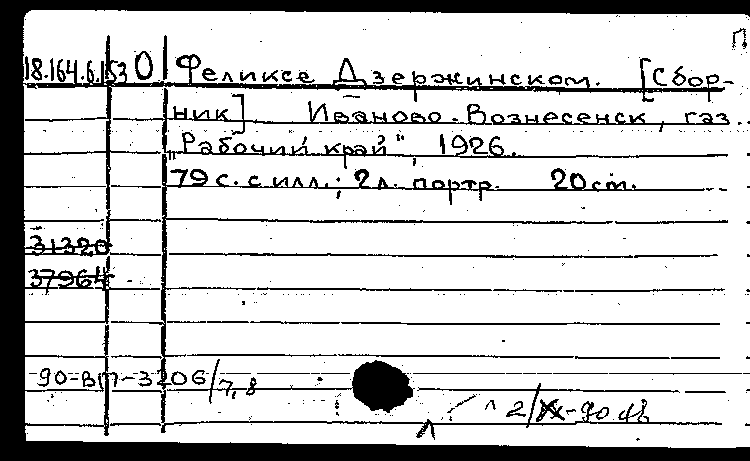 18.164.6.153 О Феликсе Дзержинском. [Сбор-
ник] Иваново-Вознесенск, газ.
„Рабочий край", 1926.
79 с. с илл.; 2 л. портр. 20 cm.
31320
37964
90-ВП-3206/7,8